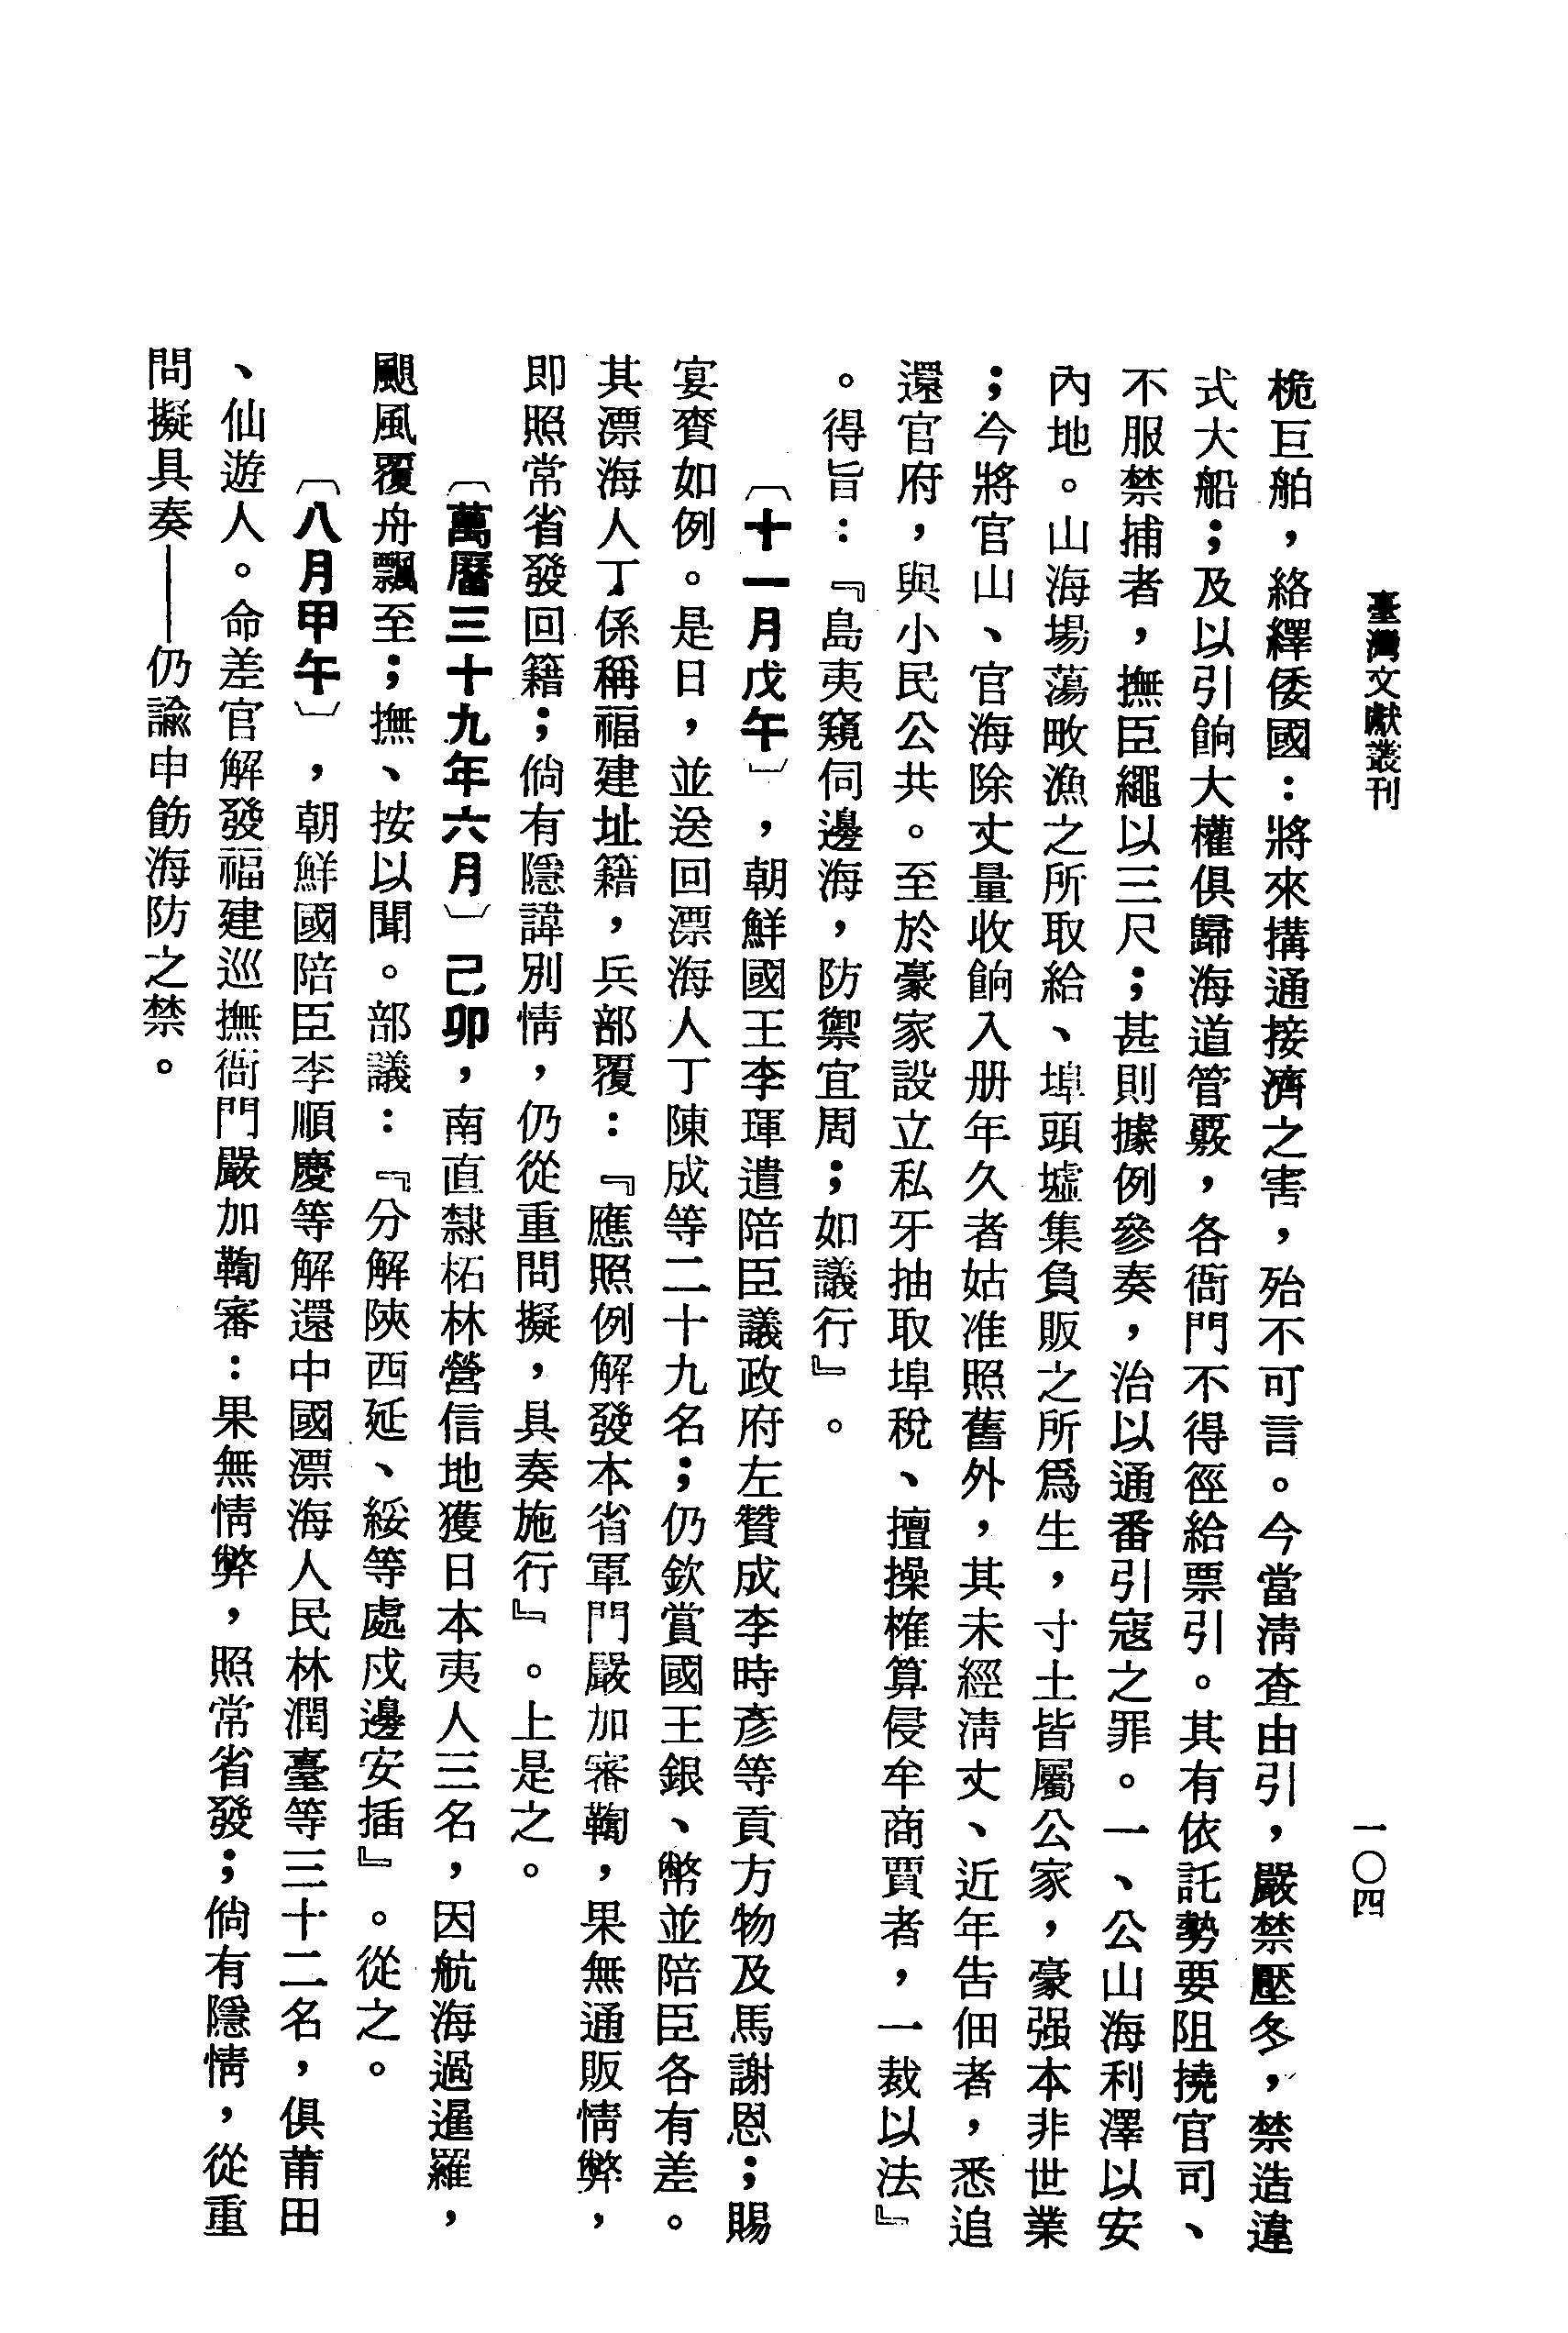 臺灣文獻叢刊
一〇四
桅巨舶，絡繹倭國：將來搆通接濟之害，殆不可言。今當清查由引，嚴禁壓冬，禁造違
式大船；及以引餉大權俱歸海道管覈，各衙門不得徑給票引。其有依託勢要阻撓官司、
不服禁捕者，撫臣繩以三尺；甚則據例參奏，治以通番引寇之罪。一、公山海利澤以安
內地。山海場蕩畋漁之所取給、埠頭墟集負販之所爲生，寸土皆屬公家，豪强本非世業
；今將官山、官海除丈量收餉入册年久者姑准照舊外，其未經清丈、近年告佃者，悉追
還官府，與小民公共。至於豪家設立私牙抽取埠稅、擅操榷算侵牟商賈者，一裁以法』
。得旨：『島夷窺伺邊海，防禦宜周；如議行』。
〔十一月戊午〕，朝鮮國王李琿遣陪臣議政府左贊成李時彥等貢方物及馬謝恩；賜
宴賚如例。是日，並送回漂海人丁陳成等二十九名；仍欽賞國王銀、幣並陪臣各有差。
其漂海人丁係稱福建址籍，兵部覆：『應照例解發本省軍門嚴加審鞫，果無通販情弊，
即照常省發回籍；倘有隱諱別情，仍從重問擬，具奏施行』。上是之。
〔萬曆三十九年六月〕己卯，南直隸柘林營信地獲日本夷人三名，因航海過暹羅，
颶風覆舟飄至；撫、按以聞。部議：『分解陝西延、綏等處戍邊安插』。從之。
〔八月甲午〕，朝鮮國陪臣李順慶等解還中國漂海人民林潤臺等三十二名，俱莆田
、仙遊人。命差官解發福建巡撫衙門嚴加鞫審：果無情弊，照常省發；倘有隱情，從重
問擬具奏——仍諭申飭海防之禁。